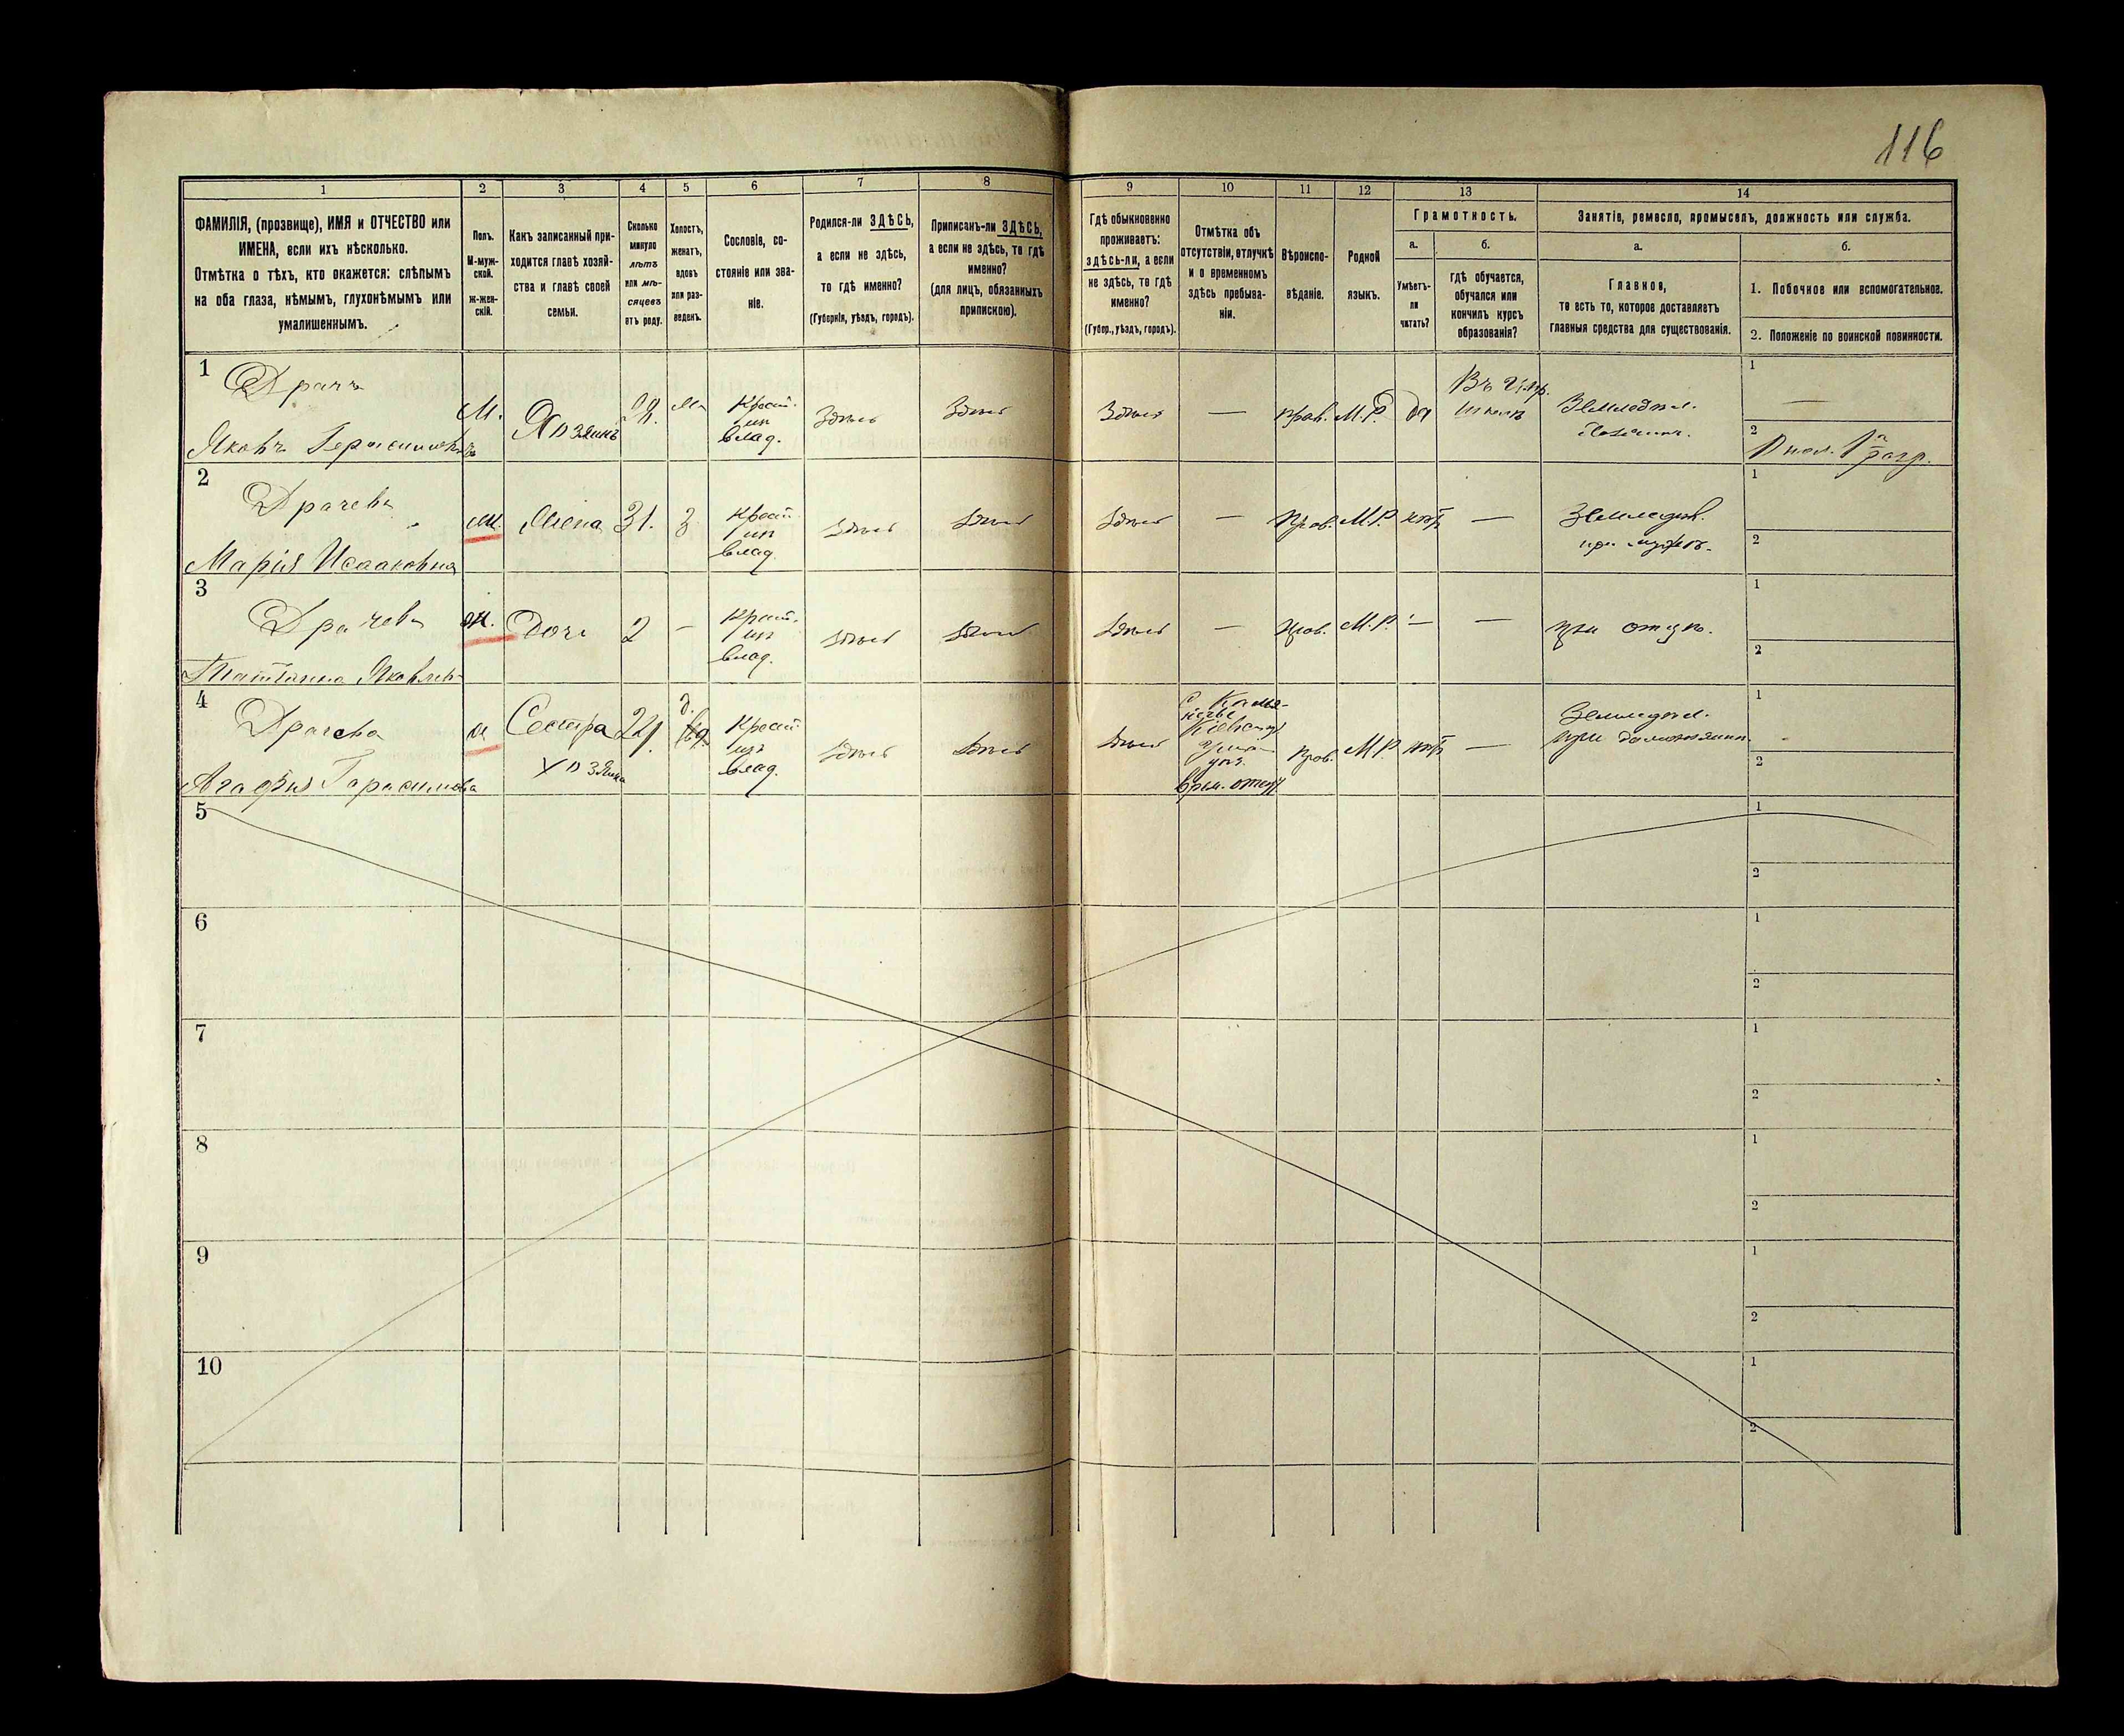 116
1 2 3 4 5 6 7 8 9 10 11 12 13 14
ФАМИЛІЯ, (прозвище), ИМЯ и ОТЧЕСТВО или
ИМЕНА, если ихъ нѣсколько.
Отмѣтка о тѣхъ, кто окажется: слѣпымъ
на оба глаза, нѣмымъ, глухонѣмымъ или
умалишеннымъ.
Полъ.
М-муж-
ской.
ж-жен-
скій.
Какъ записанный при-
ходится главѣ хозяй-
ства и главѣ своей
семьи.
Сколько
минуло
лѣтъ
или мѣ-
сяцевъ
отъ роду.
Холостъ,
женатъ,
вдовъ
или раз-
веденъ.
Сословіе, со-
стояніе или зва-
ніе.
Родился-ли ЗДѢСЬ,
а если не здѣсь,
то гдѣ именно?
(Губернія, уѣздъ, городъ).
Приписанъ-ли ЗДѢСЬ,
а если не здѣсь, то гдѣ
именно?
(для лицъ, обязанныхъ
припискою).
Гдѣ обыкновенно
проживаетъ:
здѣсь-ли, а если
не здѣсь, то гдѣ
именно?
(Губер., уѣздъ, городъ).
Отмѣтка объ
отсутствіи, отлучкѣ
и о временномъ
здѣсь пребыва-
ніи.
Вѣроиспо-
вѣданіе.
Родной
языкъ.
Грамотность.
а.
Умѣетъ-
ли
читать?
б.
гдѣ обучается,
обучался или
кончилъ курсъ
образованія?
Занятіе, ремесло, промыселъ, должность или служба.
а.
Главное,
то есть то, которое доставляетъ
главныя средства для существованія.
б.
1. Побочное или вспомогательное.
2. Положеніе по воинской повинности.
1 Драчъ
Яковъ Герасимовъ
М. Хозяинъ 28. Крест. из влад. Здѣсь Здѣсь Здѣсь — прав. М.Р. да Въ школѣ Земледѣл. 1 — 2
2 Драчева
Марія Исааковна
ж. Жена 31. З Крест. из влад. Здѣсь Здѣсь Здѣсь — Прав. М.Р. нѣтъ — Земледѣл. при мужѣ. 1 2
3 Драчева
Татьяна Яковлев
ж. Дочь 2 — Крест. из влад. Здѣсь Здѣсь Здѣсь — Прав. М.Р. — — при отцѣ. 1 2
4 Драчева
Агафія Герасимова
ж Сестра хозяина 22 д. Крест из влад. Здѣсь Здѣсь Здѣсь Прав. М.Р. нѣтъ — Земледѣл. при домохозяинѣ. 1 - 2
5 1 2
6 1 2
7 1 2
8 1 2
9 1 2
10 1 2